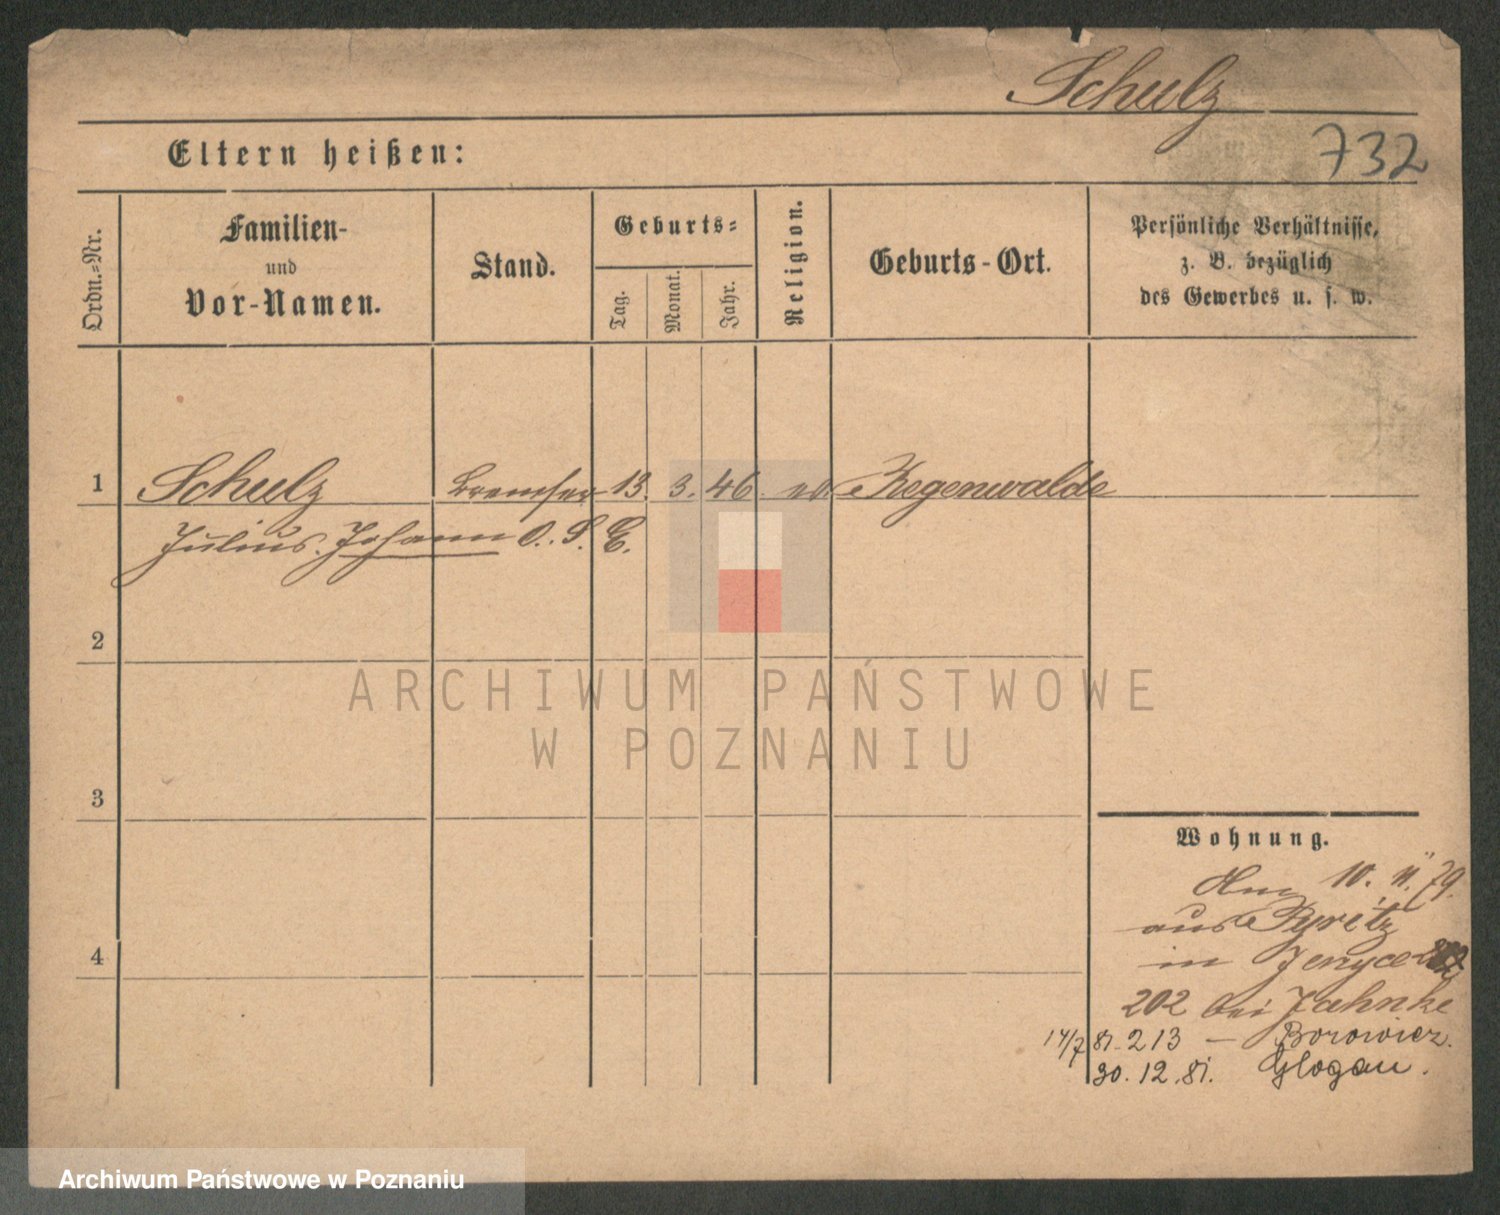 Schulz
732
Eltern heißen:
Ordn.-Nr.
Familien-
und
Vor-Namen.
Stand.
Geburts-
Tag.
Monat.
Jahr.
Religion.
Geburts-Ort.
Persönliche Verhältnisse,
z. B. bezüglich
des Gewerbes u. s. w.
1 Schulz Bremser 13. 3. 46 ev. Regenwalde
Julius. Johann O. S. E.
2
3
4
ARCHIWUM PAŃSTWOWE
W POZNANIU
Wohnung.
10. 11. 79.
aus Pyritz
in Jerzyce
202 bei Jahnke
14/7 81. 213 — Borowicz.
30. 12. 81. Glogau.
Archiwum Państwowe w Poznaniu